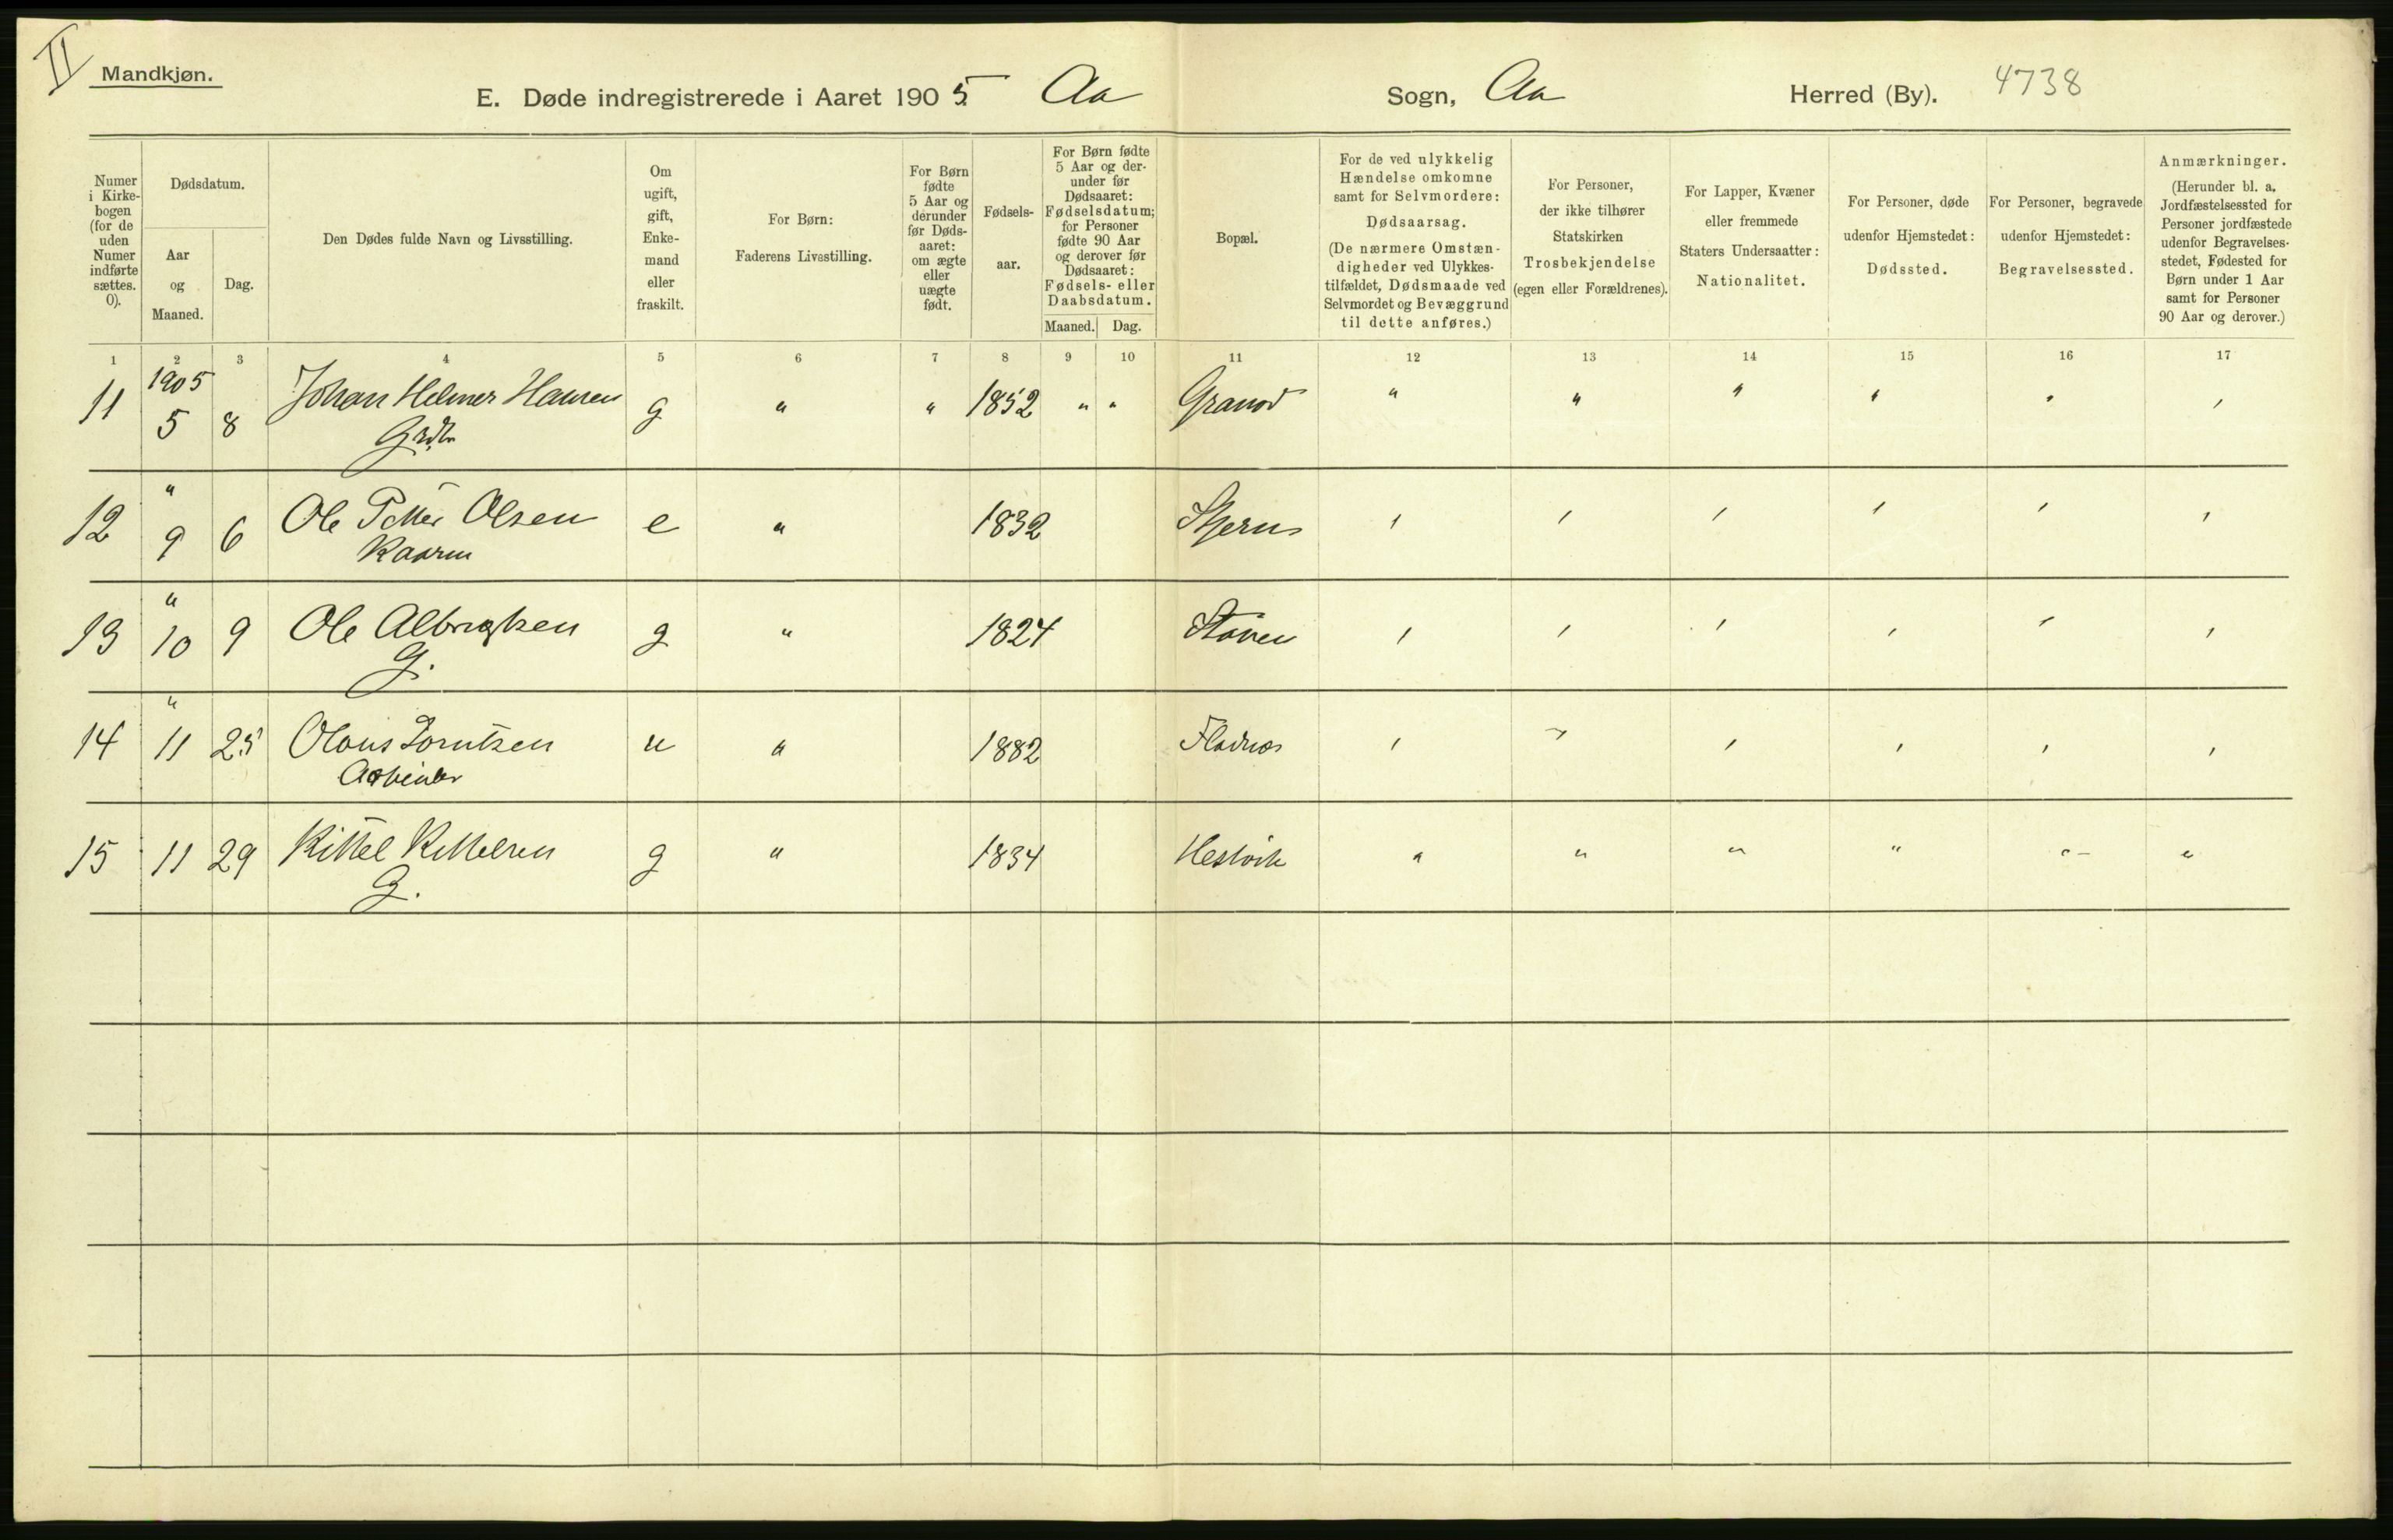 II
Mandkjøn.
E. Døde indregistrerede i Aaret 1905 Aa Sogn, Aa Herred (By). 4738
Numer i Kirkebogen (for de uden Numer indførte sættes. 0).
Dødsdatum.
Aar og Maaned.
Dag.
Den Dødes fulde Navn og Livsstilling.
Om ugift, gift, Enkemand eller fraskilt.
For Børn:
Faderens Livsstilling.
For Børn fødte 5 Aar og derunder før Dødsaaret: om ægte eller uægte født.
Fødselsaar.
For Børn fødte 5 Aar og derunder før Dødsaaret: Fødselsdatum; for Personer fødte 90 Aar og derover før Dødsaaret: Fødsels- eller Daabsdatum.
Maaned. Dag.
Bopæl.
For de ved ulykkelig Hændelse omkomne samt for Selvmordere: Dødsaarsag.
(De nærmere Omstændigheder ved Ulykkestilfældet, Dødsmaade ved Selvmordet og Bevæggrund til dette anføres.)
For Personer, der ikke tilhører Statskirken Trosbekjendelse (egen eller Forældrenes).
For Lapper, Kvæner eller fremmede Staters Undersaatter: Nationalitet.
For Personer, døde udenfor Hjemstedet: Dødssted.
For Personer, begravede udenfor Hjemstedet: Begravelsessted.
Anmærkninger.
(Herunder bl. a. Jordfæstelsessted for Personer jordfæstede udenfor Begravelsesstedet, Fødested for Børn under 1 Aar samt for Personer 90 Aar og derover.)
1 2 3 4 5 6 7 8 9 10 11 12 13 14 15 16 17
1905
11 5 8 Johan Helmer Hansen g " " 1852 " " " " " " " "
"
12 9 6 Ole Petter Olsen e " 1832
"
13 10 9 Ole Albrigtsen g " 1824 Støven
G.
"
14 11 25 Olaus Lorntzen u " 1882 Fladnes
Arbeider
15 11 29 Kittel Kittelsen g " 1834 Hestvik " " " " " "
G.